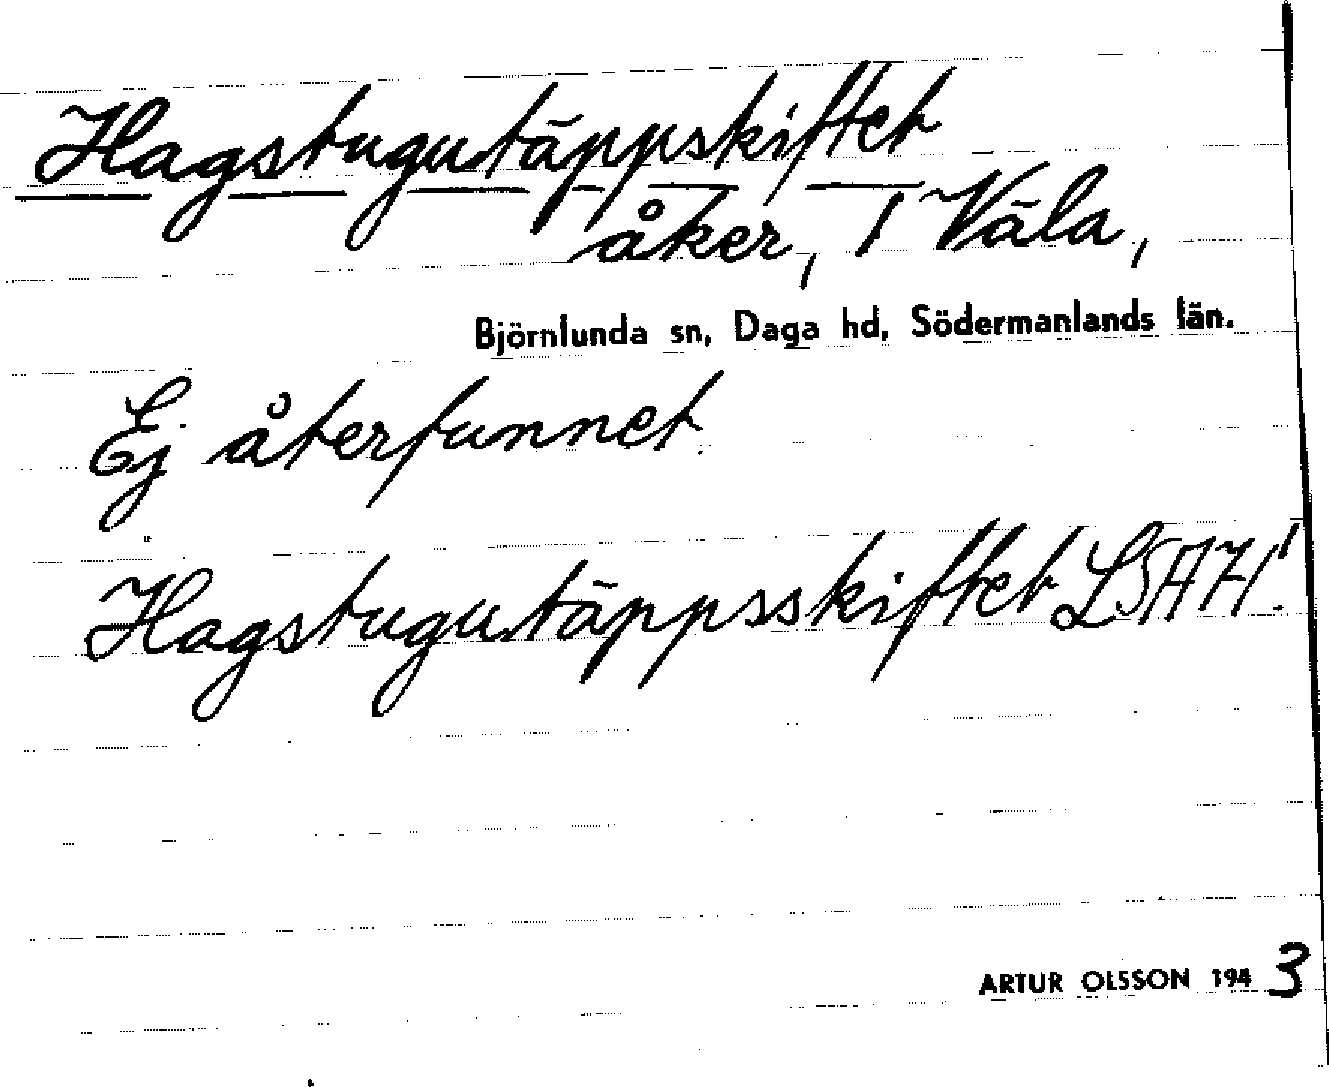 Hagstugutäppskiftet
åker, 1 Väla,
Björnlunda sn, Daga hd, Södermanlands län.
Ej återfunnet
Hagstugutäppsskiftet LSA
ARTUR OLSSON 1943